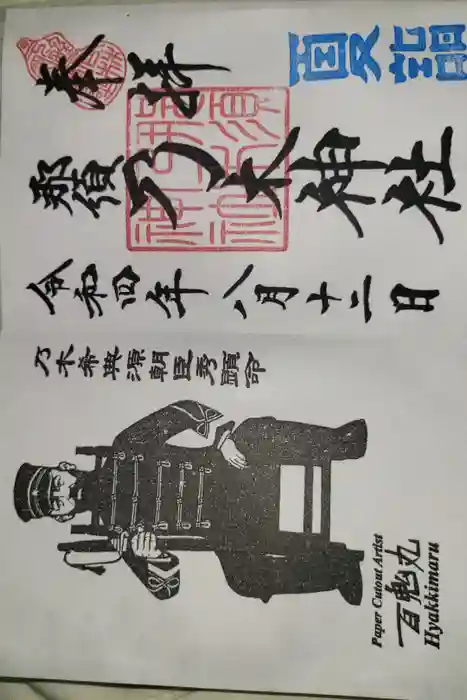 奉拝
夏詣
那須
乃木神社
令和四年八月十二日
乃木希典源朝臣秀顯命
Paper Cutout Artist
百鬼丸
Hyakkimaru